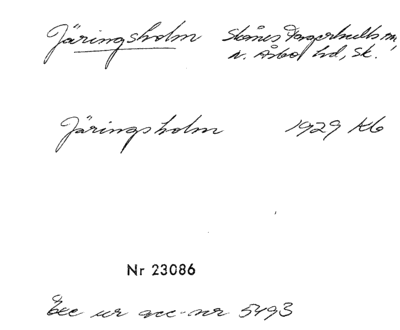 Järingsholm Skånes Fagerhults sn,
N. Åsbo hd, Sk.
Järingsholm 1929 Kb
Nr 23086
Exc ur acc-nr 5493